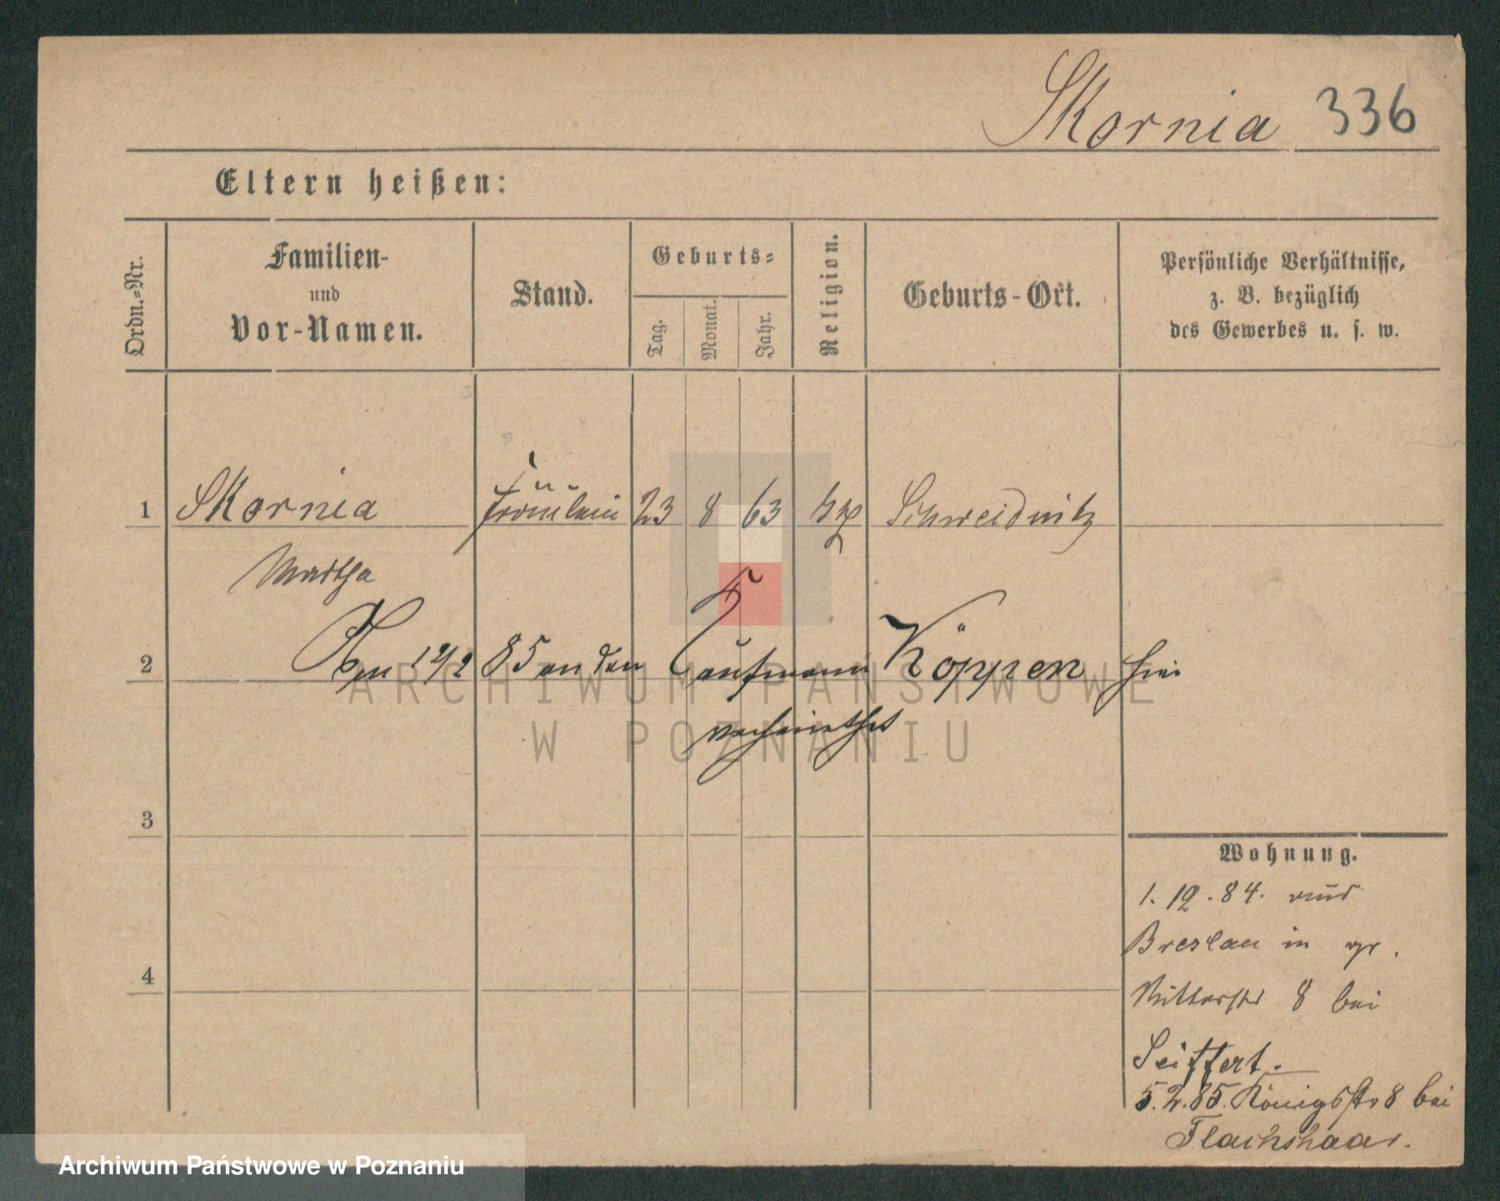 Skornia 336
Eltern heißen:
Ordn.-Nr.
Familien-
und
Vor-Namen.
Stand.
Geburts-
Tag.
Monat.
Jahr.
Religion.
Geburts-Ort.
Persönliche Verhältnisse,
z. B. bezüglich
des Gewerbes u. s. w.
1 Skornia Fräulein 23 8 63 Schweidnitz
Martha
2 85 an den Kaufmann Köppen hier
verheirathet
3
4
Wohnung.
1. 12. 84. aus
Breslau in gr.
Ritterstr 8 bei
Seiffert.
5. 2. 85. Königsstr 8 bei
Flachshaar.
ARCHIWUM PAŃSTWOWE
W POZNANIU
Archiwum Państwowe w Poznaniu